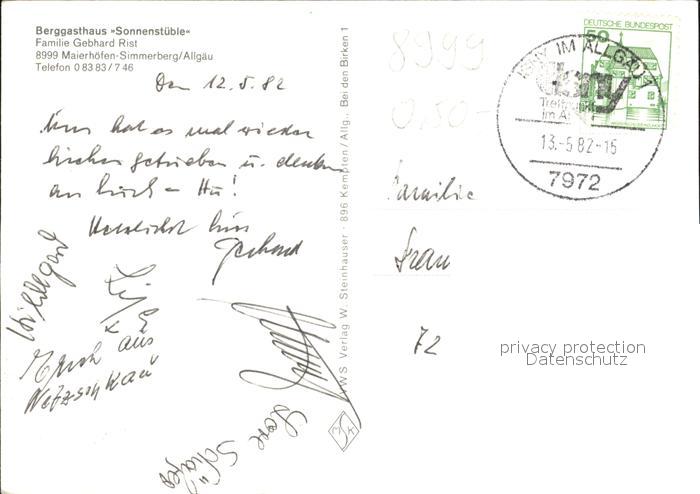 Berggasthaus »Sonnenstüble«
Familie Gebhard Rist
8999 Maierhöfen-Simmerberg/Allgäu
Telefon 0 83 83 / 7 46
Den 12.5.82
Uns hat es mal wieder
hierher getrieben u. denken
an Euch –
Herzlichst
Gerhard
Erich aus
Netzschkau
Lore Schäfer
AWS Verlag W. Steinhauser · 896 Kempten/Allg., Bei den Birken 1
8999
0,50-
DEUTSCHE BUNDESPOST
50
ISNY IM ALLGÄU 1
isny
Treffpunkt
im
13.-5.82-15
7972
Familie
Frau
72
privacy protection
Datenschutz